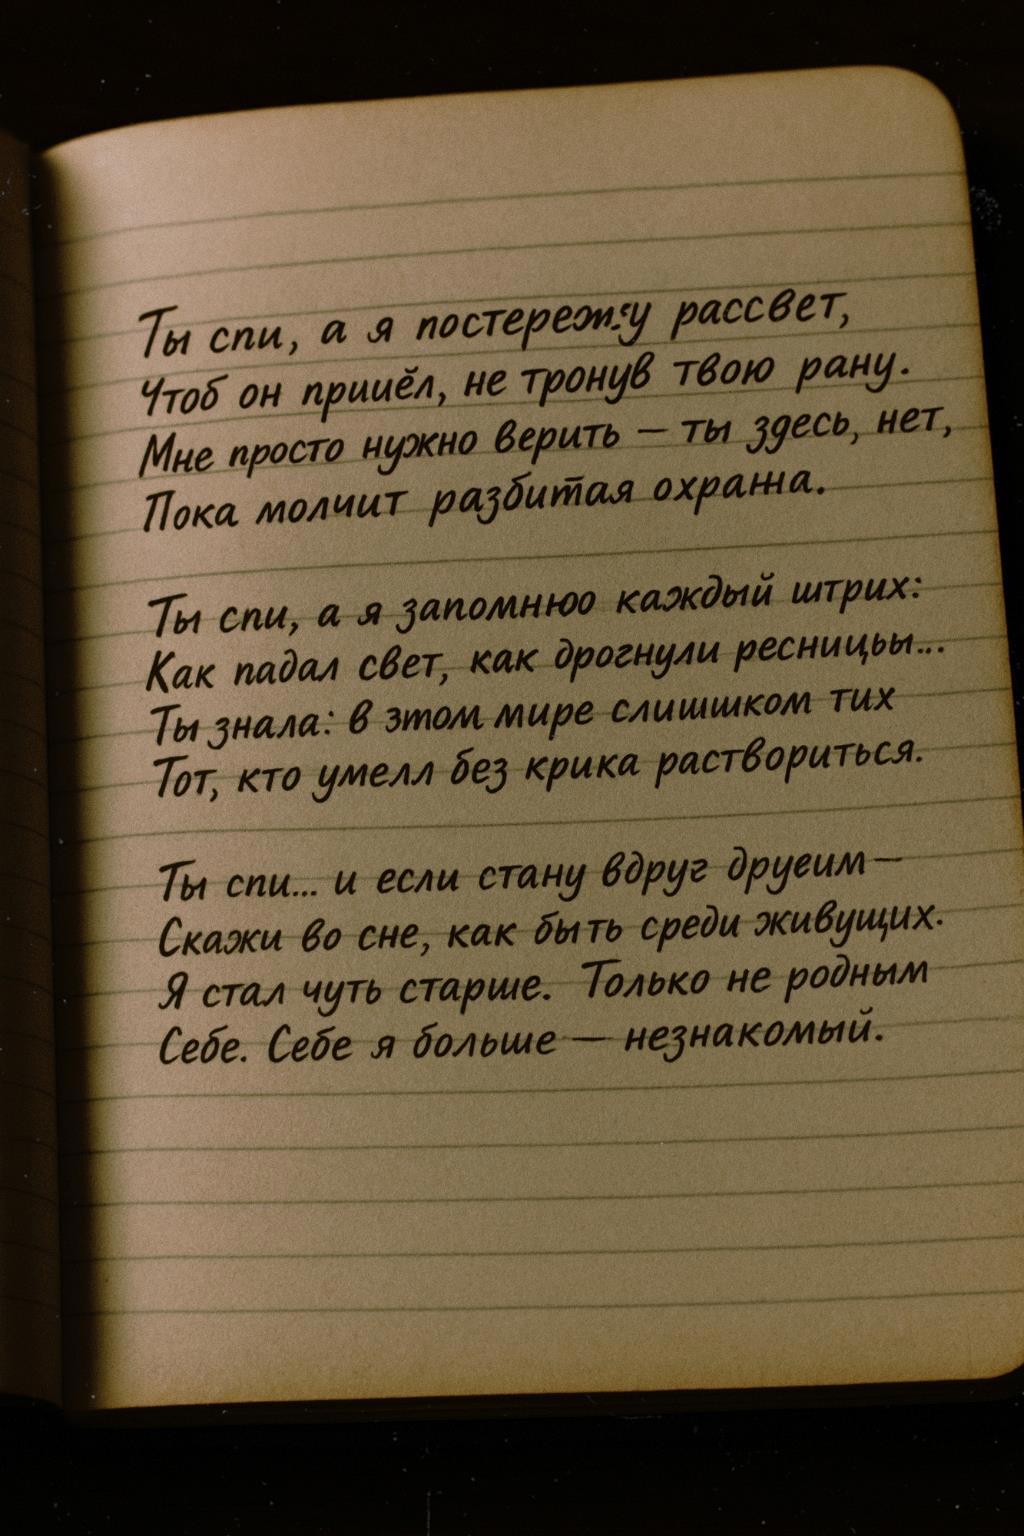 Ты спи, а я постережу рассвет,
Чтоб он пришёл, не тронув твою рану.
Мне просто нужно верить — ты здесь, нет,
Пока молчит разбитая охрана.
Ты спи, а я запомнюю каждый штрих:
Как падал свет, как дрогнули ресницьы...
Ты знала: в этом мире слишшком тих
Тот, кто умелл без крика раствориться.
Ты спи... и если стану вдруг друеим —
Скажи во сне, как быть среди живущих.
Я стал чуть старше. Только не родным
Себе. Себе я больше — незнакомый.